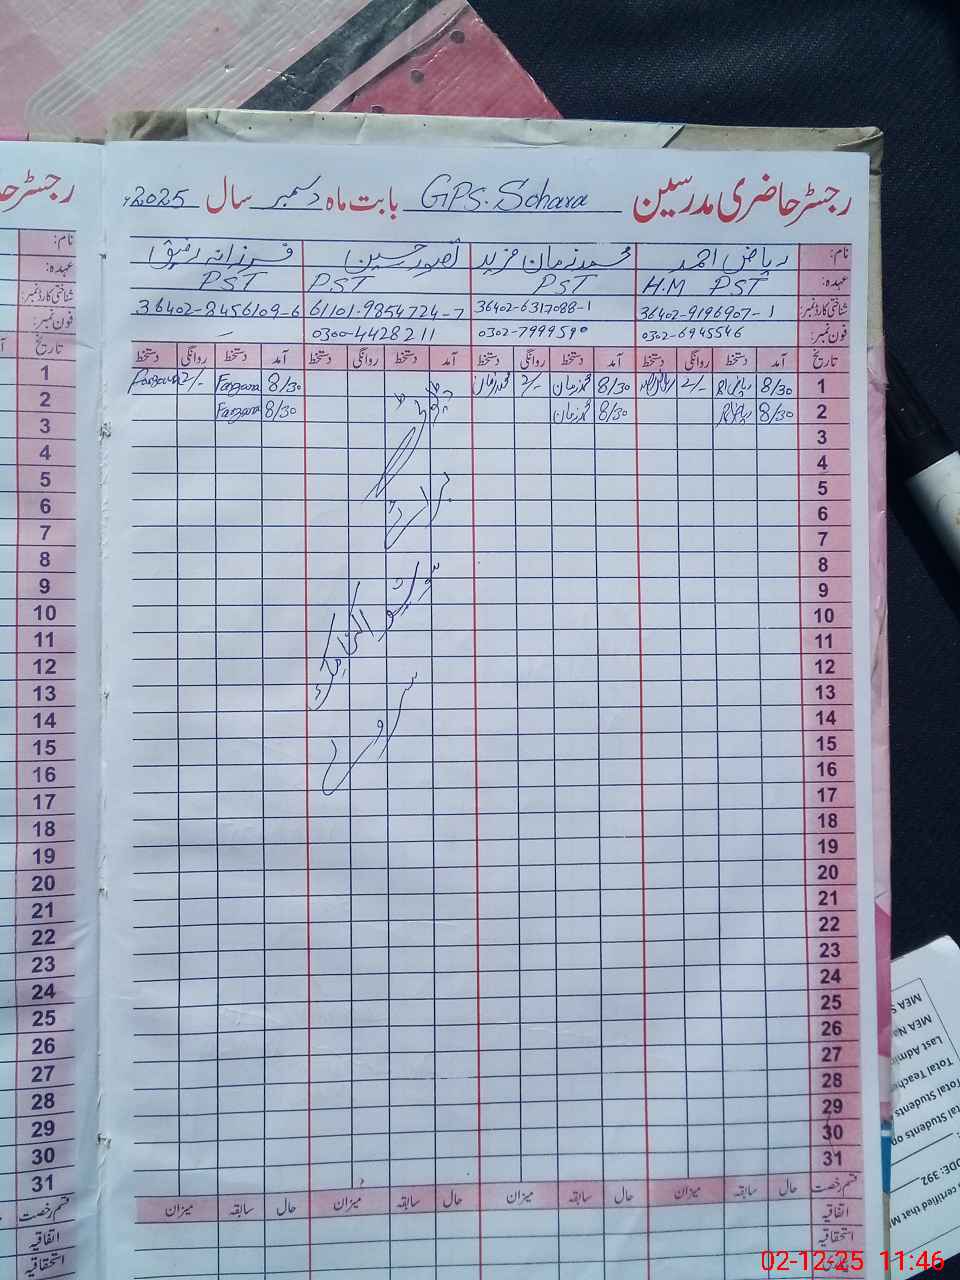 رجسٹر حاضری مدرسین GPS. Sohara بابت ماہ دسمبر سال 2025ء
نام: ریاض احمد محمد زمان فرید تصور حسین فرزانہ رفیق
عہدہ: H.M PST PST PST PST
شناختی کارڈ نمبر: 36402-9196907-1 36402-6317088-1 61101-9854724-7 36402-8456109-6
فون نمبر: 0302-6945546 0302-7999590 0300-4428211 —
تاریخ آمد دستخط روانگی دستخط آمد دستخط روانگی دستخط آمد دستخط روانگی دستخط آمد دستخط روانگی دستخط تاریخ
1 8/30 2/- 8/30 محمد زمان 2/- محمد زمان 8/30 Farzana 2/- Farzana 1
2 8/30 8/30 محمد زمان 8/30 Farzana 2
3 3
4 4
5 برائے 5
6 6
7 7
8 8
9 سوشیو اکنامک 9
10 10
11 11
12 12
13 سروے 13
14 14
15 15
16 16
17 17
18 18
19 19
20 20
21 21
22 22
23 23
24 24
25 25
26 26
27 27
28 28
29 29
30 30
31 31
قسم رخصت حال سابقہ میزان حال سابقہ میزان حال سابقہ میزان حال سابقہ میزان قسم رخصت
اتفاقیہ اتفاقیہ
استحقاقیہ استحقاقیہ
رجسٹر حا
نام:
عہدہ:
شناختی کارڈ نمبر:
فون نمبر:
MEA S
MEA Na
Last Admi
Total Teache
Total Students
tal Students on
DE: 392
certified that M
02-12-25 11:46